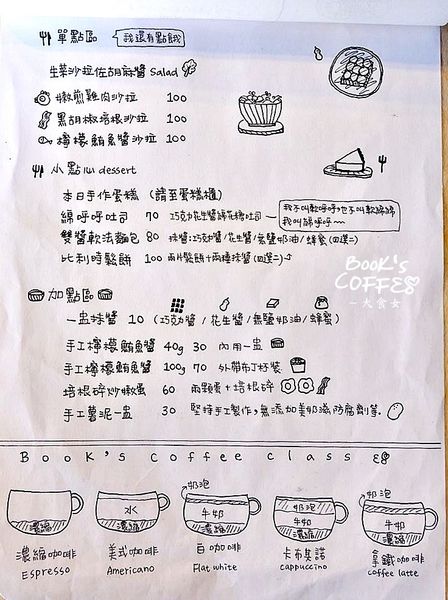 單點區 我還有點餓
生菜沙拉佐胡麻醬 Salad
嫩煎雞肉沙拉 100
黑胡椒培根沙拉 100
檸檬鮪魚醬沙拉 100
小點心 dessert
本日手作蛋糕 (請至蛋糕櫃)
綿呼呼吐司 70 巧克力花生醬綿花糖吐司
我不叫軟呼呼,也不叫軟綿綿
我叫綿呼呼~
雙醬軟法麵包 80 抹醬:巧克力醬/花生醬/無鹽奶油/蜂蜜(四選二)
比利時鬆餅 100 兩片鬆餅+兩種抹醬(四選二)
BOOK'S
COFFEE
一大食女
加點區
一盅抹醬 10 (巧克力醬 / 花生醬 / 無鹽奶油 / 蜂蜜)
手工檸檬鮪魚醬 40g 30 內用一盅
手工檸檬鮪魚醬 100g 70 外帶布丁杯裝
培根碎炒嫩蛋 60 兩顆蛋+培根碎
手工薯泥一盅 30 堅持手工製作,無添加美奶滋防腐劑等.
BOOK'S coffee class
奶泡 奶泡 奶泡
水 牛奶 牛奶 牛奶
濃縮 濃縮 濃縮 濃縮 濃縮
濃縮咖啡 美式咖啡 白咖啡 卡布其諾 拿鐵咖啡
Espresso Americano Flat white cappuccino coffee latte